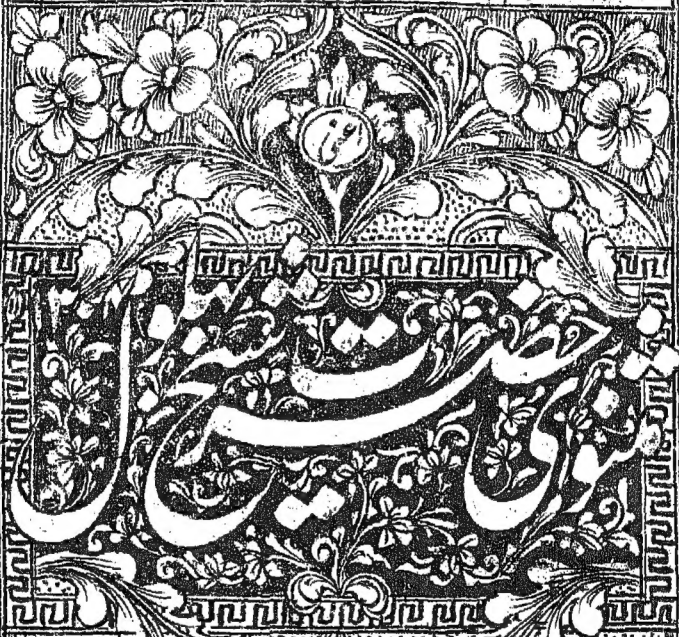 مثنوی حضرت شیخ بهلول